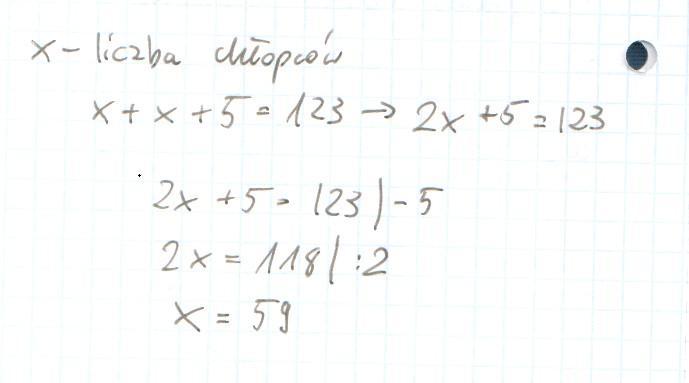 x – liczba chłopców
x + x + 5 = 123 → 2x + 5 = 123
2x + 5 = 123 | - 5
2x = 118 | : 2
x = 59